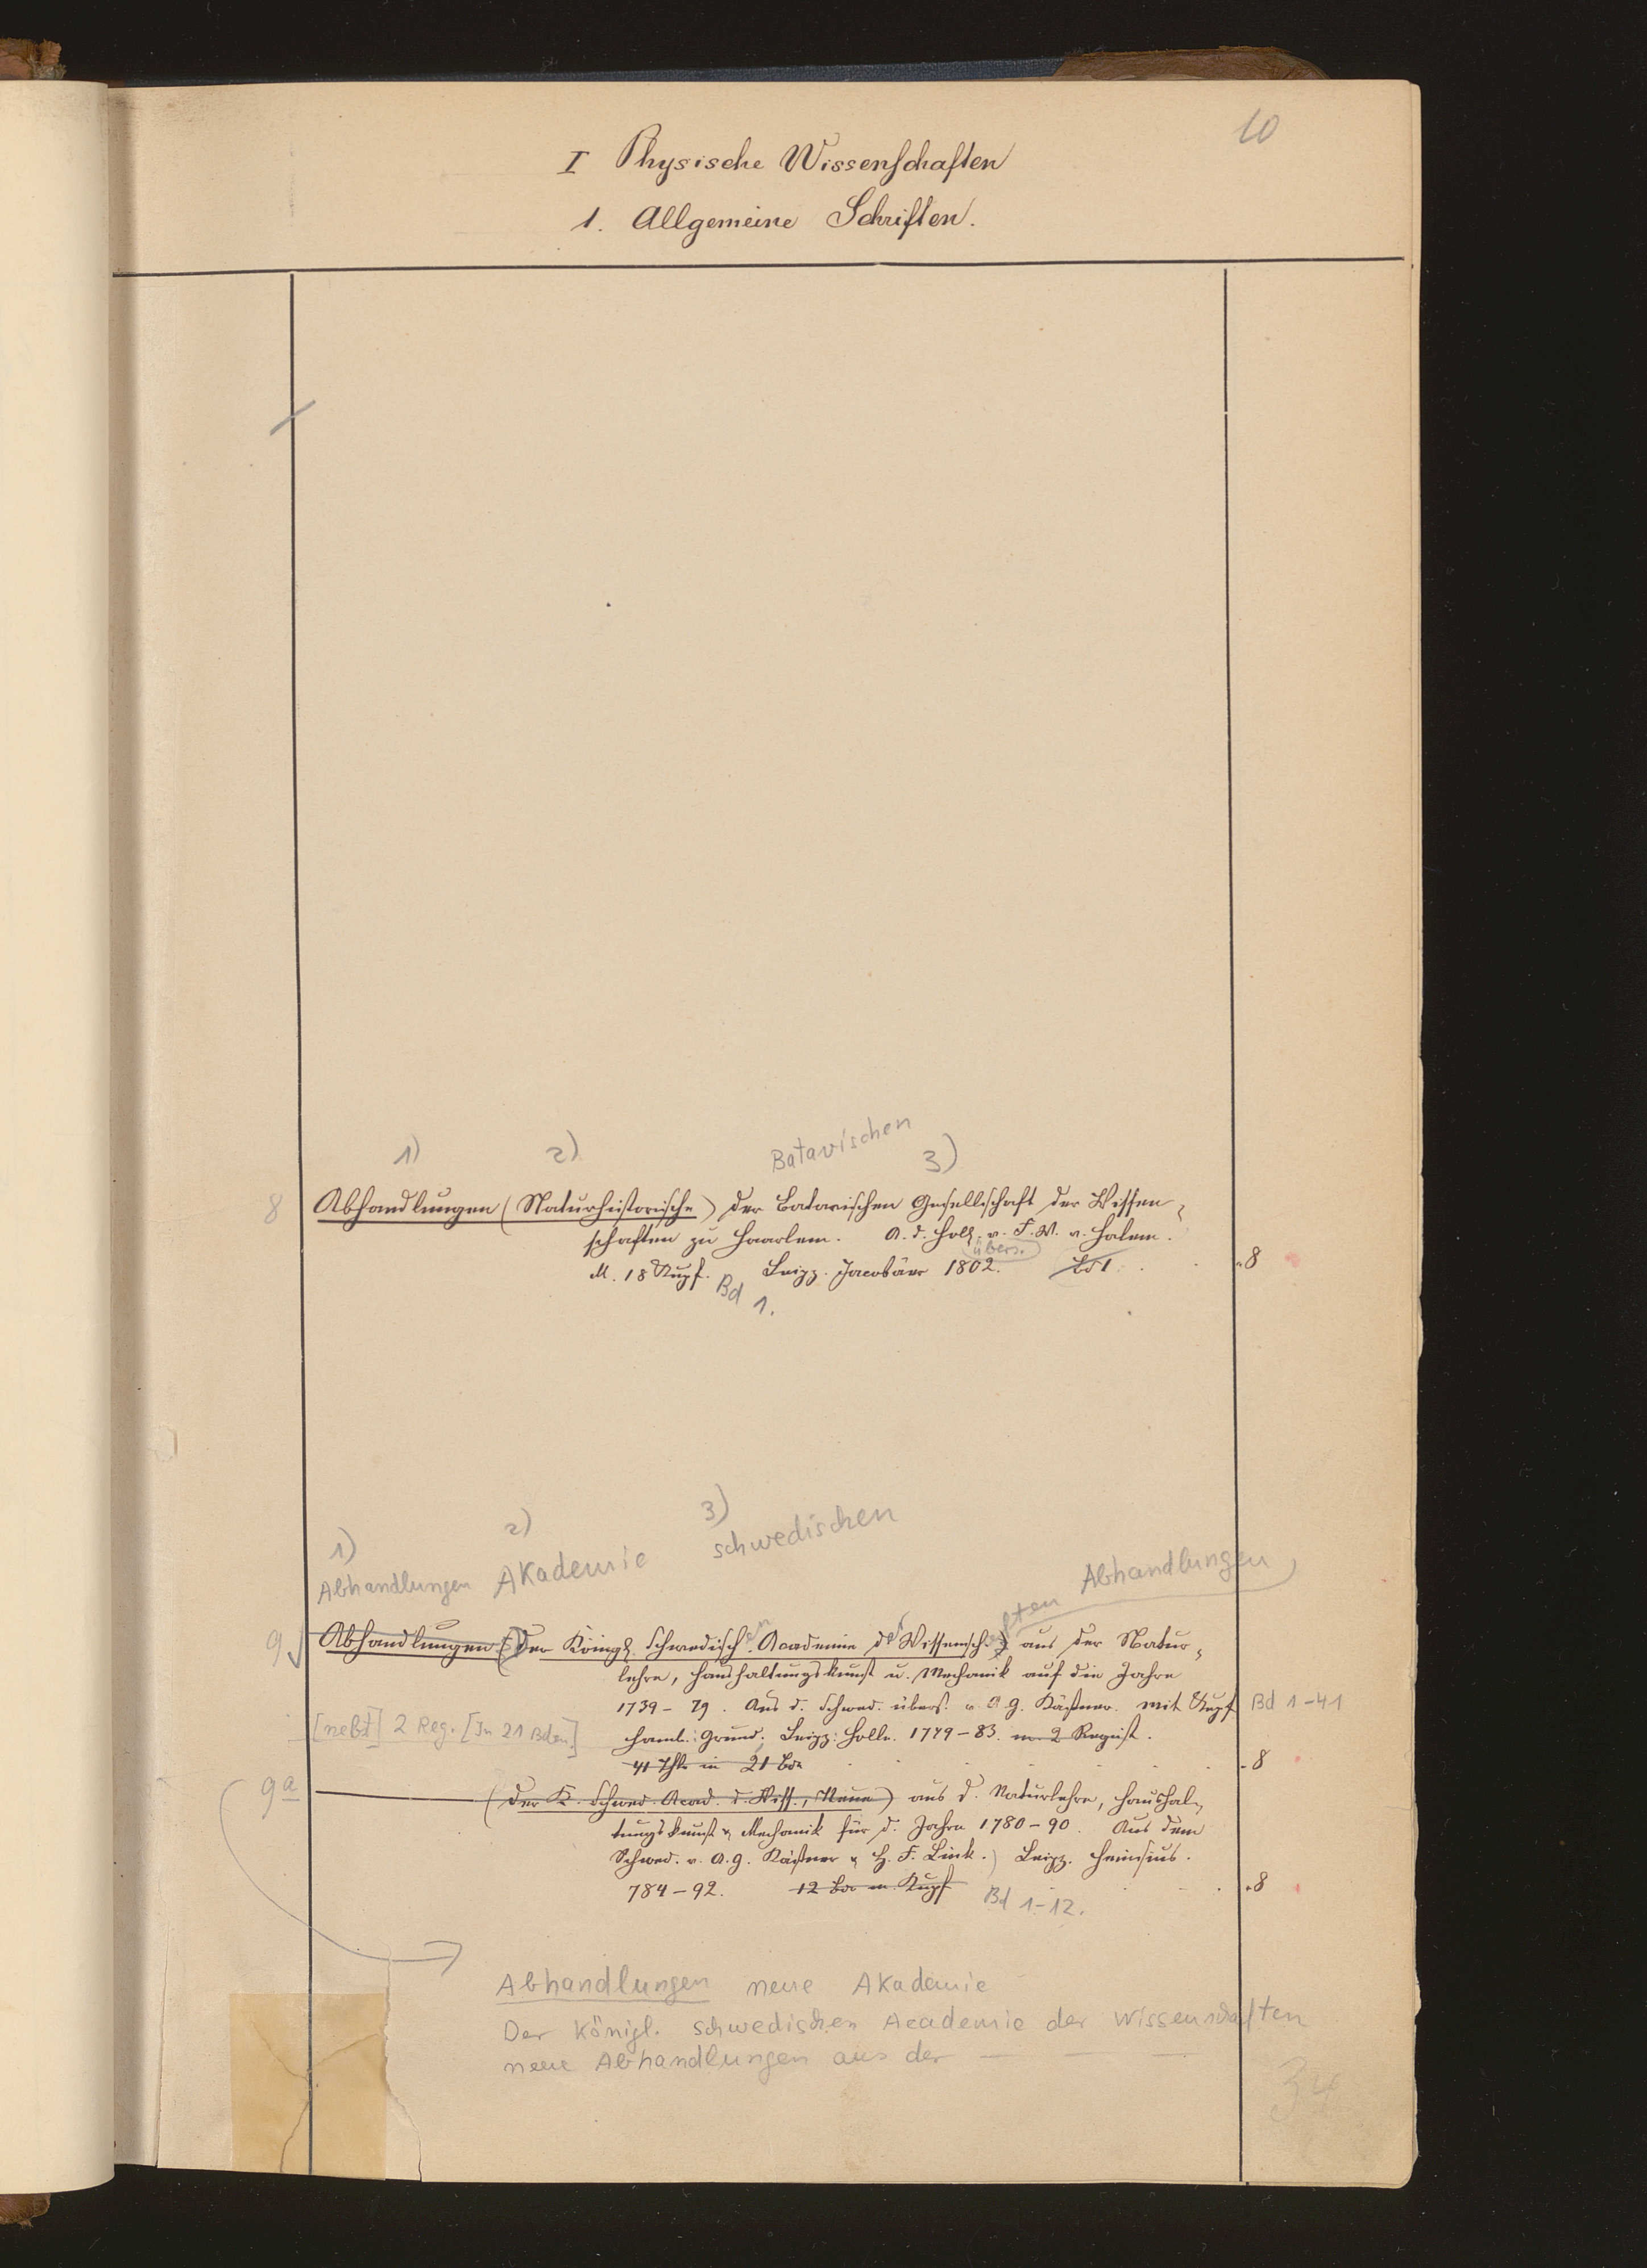 10
I Physische Wissenschaften
1. Allgemeine Schriften.
1) 2) Batavischen 3)
8 Abhandlungen (Naturhistorische) der Batavischen Gesellschaft der Wissen-
schaften zu Haarlem. A. d. Holl. v. F. W. v. Halem.
übers.
M. 18 Kupf. Leipz. Jacobäer 1802. Bd 1 . . 8
Bd 1.
1) 2) 3)
Abhandlungen Akademie schwedischen Abhandlungen
9 Abhandlungen (Der Königl. Schwedischen Academie der Wissenschaften) aus der Natur-
lehre, Haushaltungskunst u. Mechanik auf die Jahre
1739-79. Aus d. Schwed. übers. v. A. G. Kästner. mit Kupf Bd 1-41
[nebst] 2 Reg. [In 21 Bden.] Hamb.: Grund; Leipz: Holle. 1749-83. m. 2 Regist.
41 Thle in 21 Bde . . . 8
9a ——— (der K. Schwed. Acad. d. Wiss., Neue) aus d. Naturlehre, Haushal-
tungskunst u. Mechanik für d. Jahre 1780-90. Aus dem
Schwed. v. A. G. Kästner u. H. F. Link.) Leipz. Heinsius.
784-92. 12 Bde m. Kupf Bd 1-12. . . 8
Abhandlungen neue Akademie
Der Königl. schwedischen Academie der Wissenschaften
neue Abhandlungen aus der — — —
34